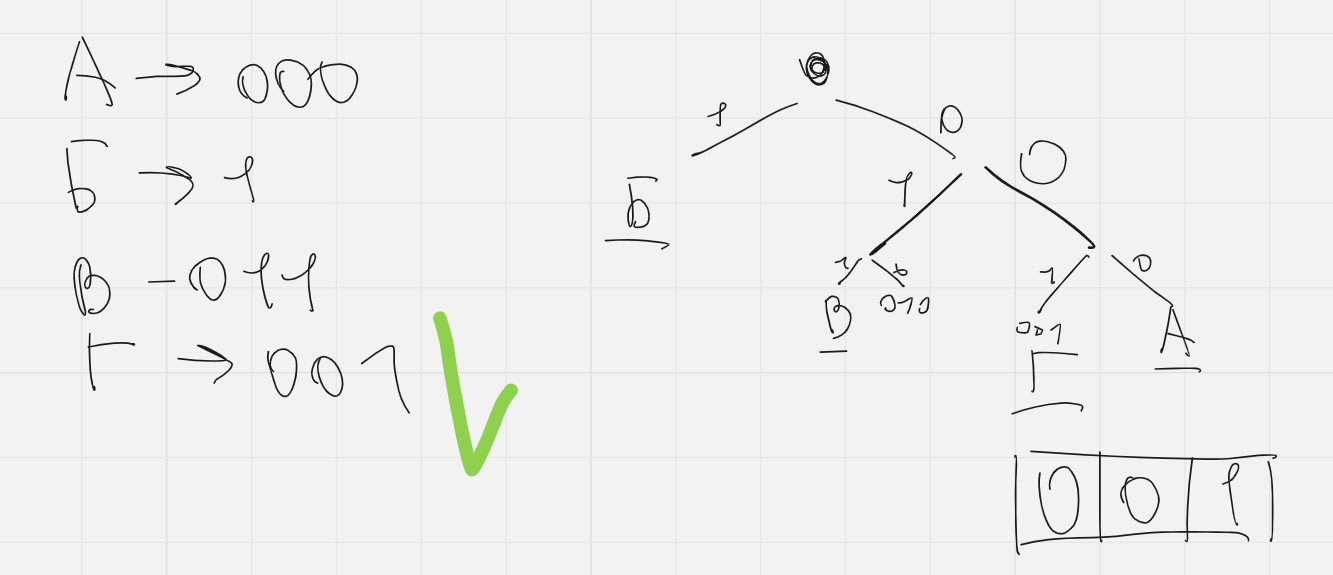 А → 000
Б → 1
В - 011
Г → 001
1 0
1 0
Б
1 0 1 0
В 010 001 А
Г
0 0 1